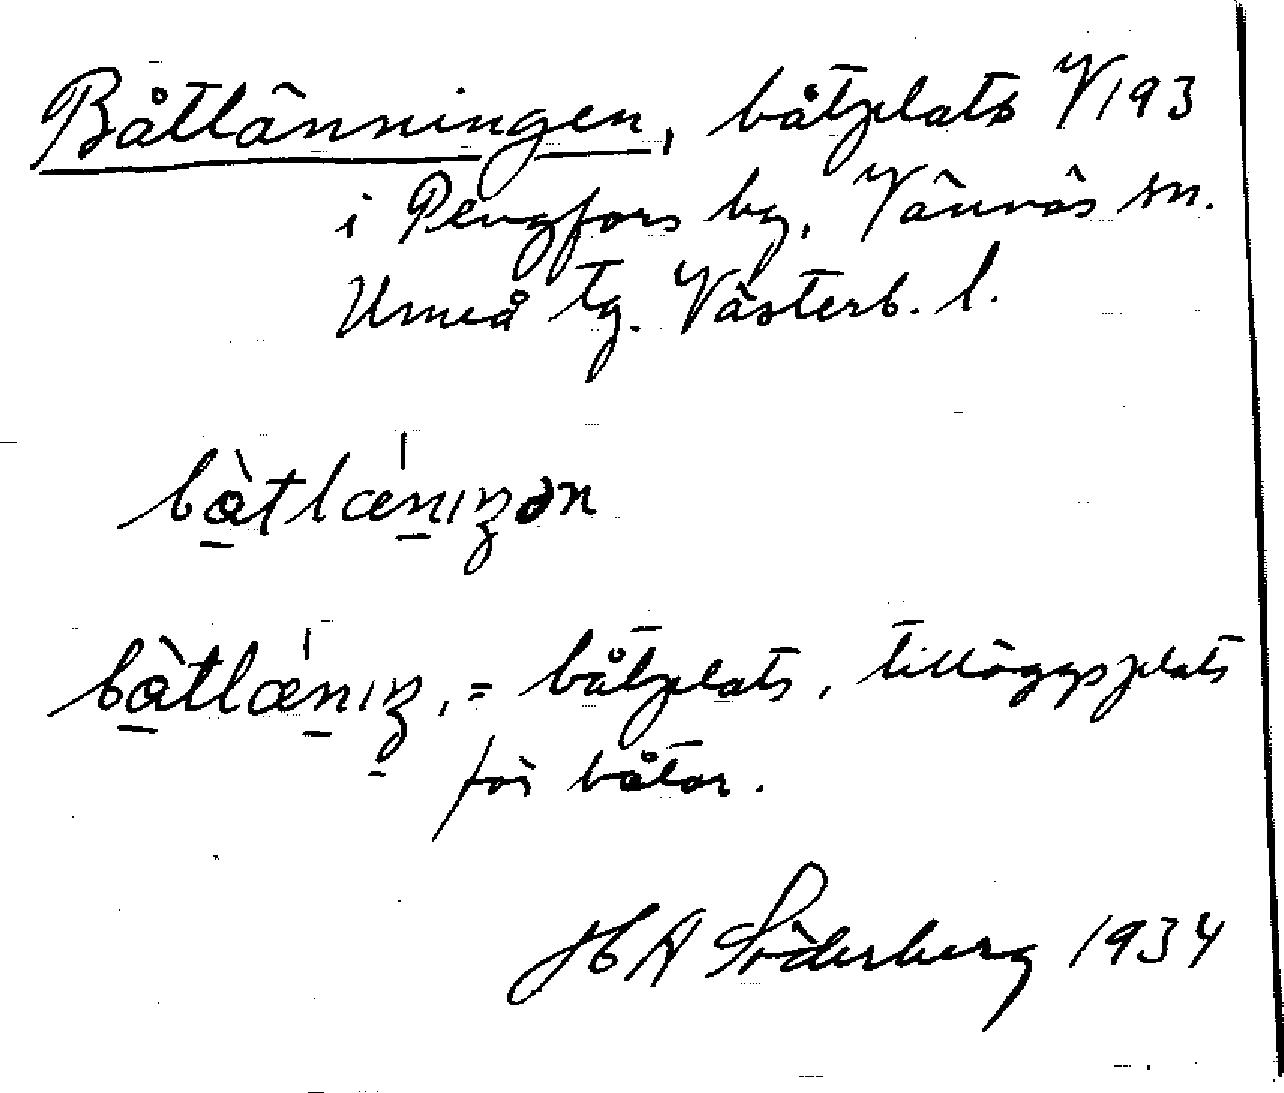 Båtlänningen, båtplats V193
i Pengfors by, Vännäs sn.
Umeå tg. Västerb. l.
bàtlænıŋən
bàtlænıŋ, = båtplats, tilläggsplats
för båtar.
H A Söderberg 1934